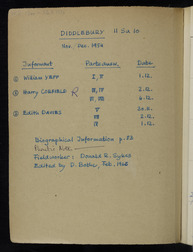 DIDDLEBURY 11 Sa 10
Nov. Dec. 1954
Informant Particulars Date
① William YAPP I, V 1.12.
② Harry CORFIELD R III, IV 2.12.
6.12.
③ Edith DAVIES V
VII 2.12.
IX 1.12.
Biographical Information p.
Fieldworker: Donald R. Sykes
Edited by D. Bothe, Feb. 1962